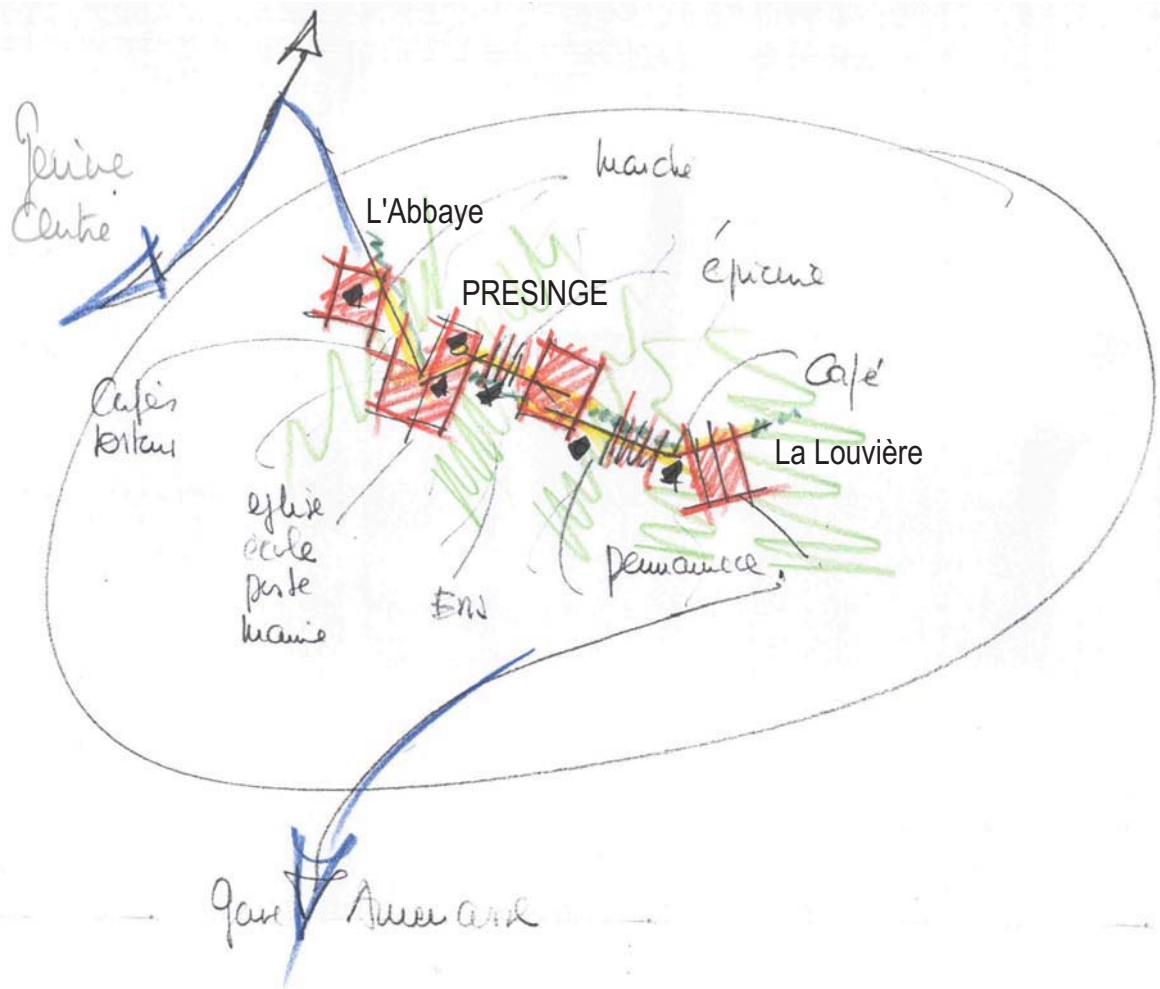 Genève
Centre
marché
L'Abbaye
épicerie
PRESINGE
Café
Cafés
La Louvière
église
école
poste
mairie
EMS
permanence
gare Annemasse